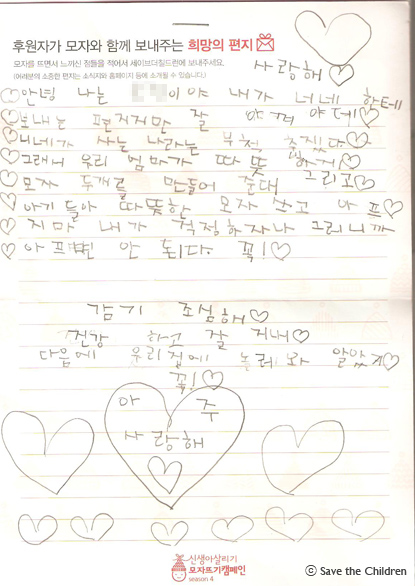 후원자가 모자와 함께 보내주는 희망의 편지
모자를 뜨면서 느끼신 점들을 적어서 세이브더칠드런에 보내주세요.
(여러분의 소중한 편지는 소식지와 홈페이지 등에 소개될 수 있습니다.)
사랑해♡
♡안녕 나는 이야 내가 너네 한테
♡보내는 편지지만 잘 야♡
♡너네가 사는 나라는 춥겠다♡
♡그래서 우리 엄마가 따뜻 하게♡
♡모자 두개를 만들어 준대 그리고♡
♡아기 들아 따뜻한 모자 쓰고 아 프♡
♡지마 내가 걱정하자나 그러니까
♡아프면 안 된다. 꼭!♡
감기 조심해♡
건강 하고 잘 지내♡
다음에 우리집에 놀러와 알았지♡
꼭!♡
아 주
사랑해
신생아살리기
모자뜨기캠페인
season 4
ⓒ Save the Children